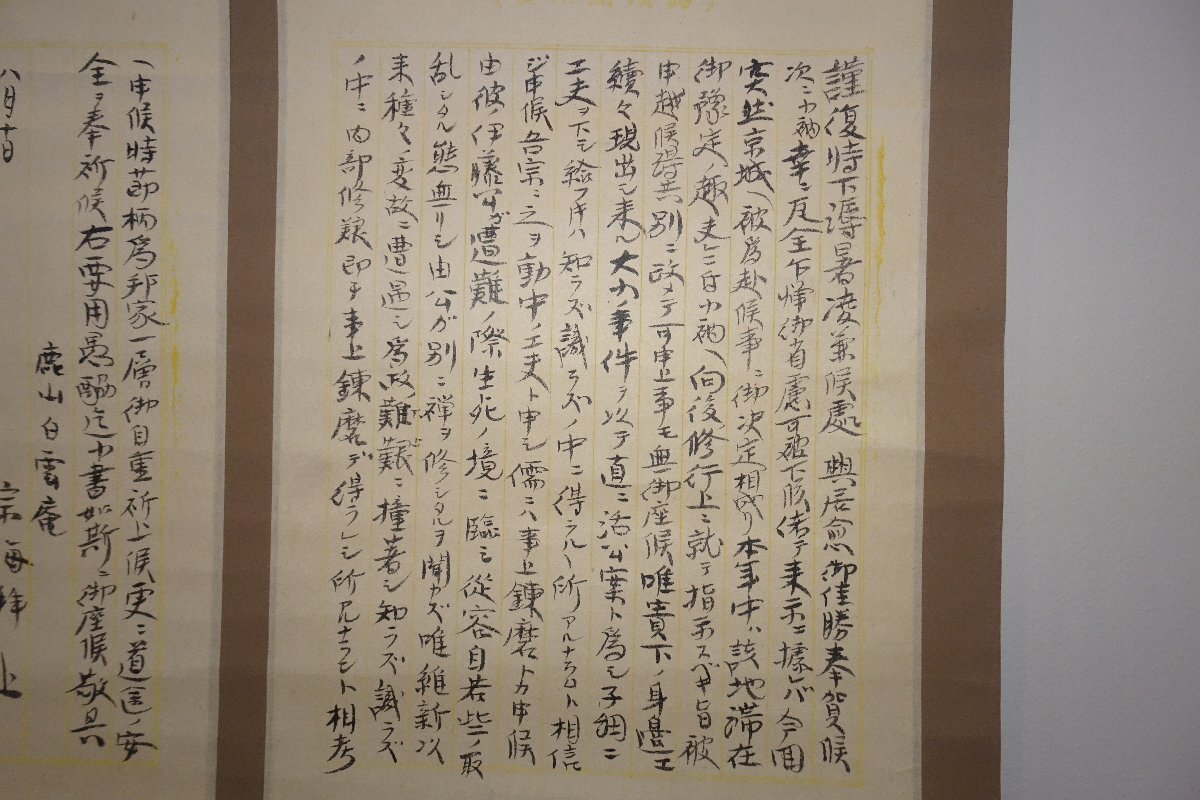 謹復時下溽暑凌兼候處 興居愈御佳勝奉賀候
次ニ小衲幸ニ反全乍憚御省慮可被下候陳テ来示ニ據レバ今回
突然京城ヘ被為赴候事ニ御決定相成リ本年中ハ該地滞在
御豫定ノ趣夫レニ付小衲ヘ向後修行上ニ就テ指示スベキ旨被
申越候得共別ニ改メテ可申上事モ無御座候唯貴下ノ身邉エ
續々現出シ来ル大小ノ事件ヲ以テ直ニ活公案ト為シ子細ニ
工夫ヲ下シ給フ時ハ知ラズ識ラズノ中ニ得ラルヽ所アルナラムト相信
ジ申候吾宗ニ之ヲ動中ノ工夫ト申シ儒ニハ事上錬磨トカ申候
由彼伊藤公ガ遭難ノ際生死ノ境ニ臨ミ従容自若些ノ取
乱シタル態無リシ由公ガ別ニ禅ヲ修シタルヲ聞カズ唯維新以
来種々変故ニ遭遇シ為政難ヤ艱ニ撞著シ知ラズ識ラズ
ノ中ニ内部修練即チ事上錬磨デ得ラレシ所アルナラント相考
ヘ申候時節柄為邦家一層御自重祈上候更ニ道医ノ安
全ヲ奉祈候右要用愚酬迄小書如斯ニ御座候敬具
鹿山白雲庵
八月十日
宗海拝上